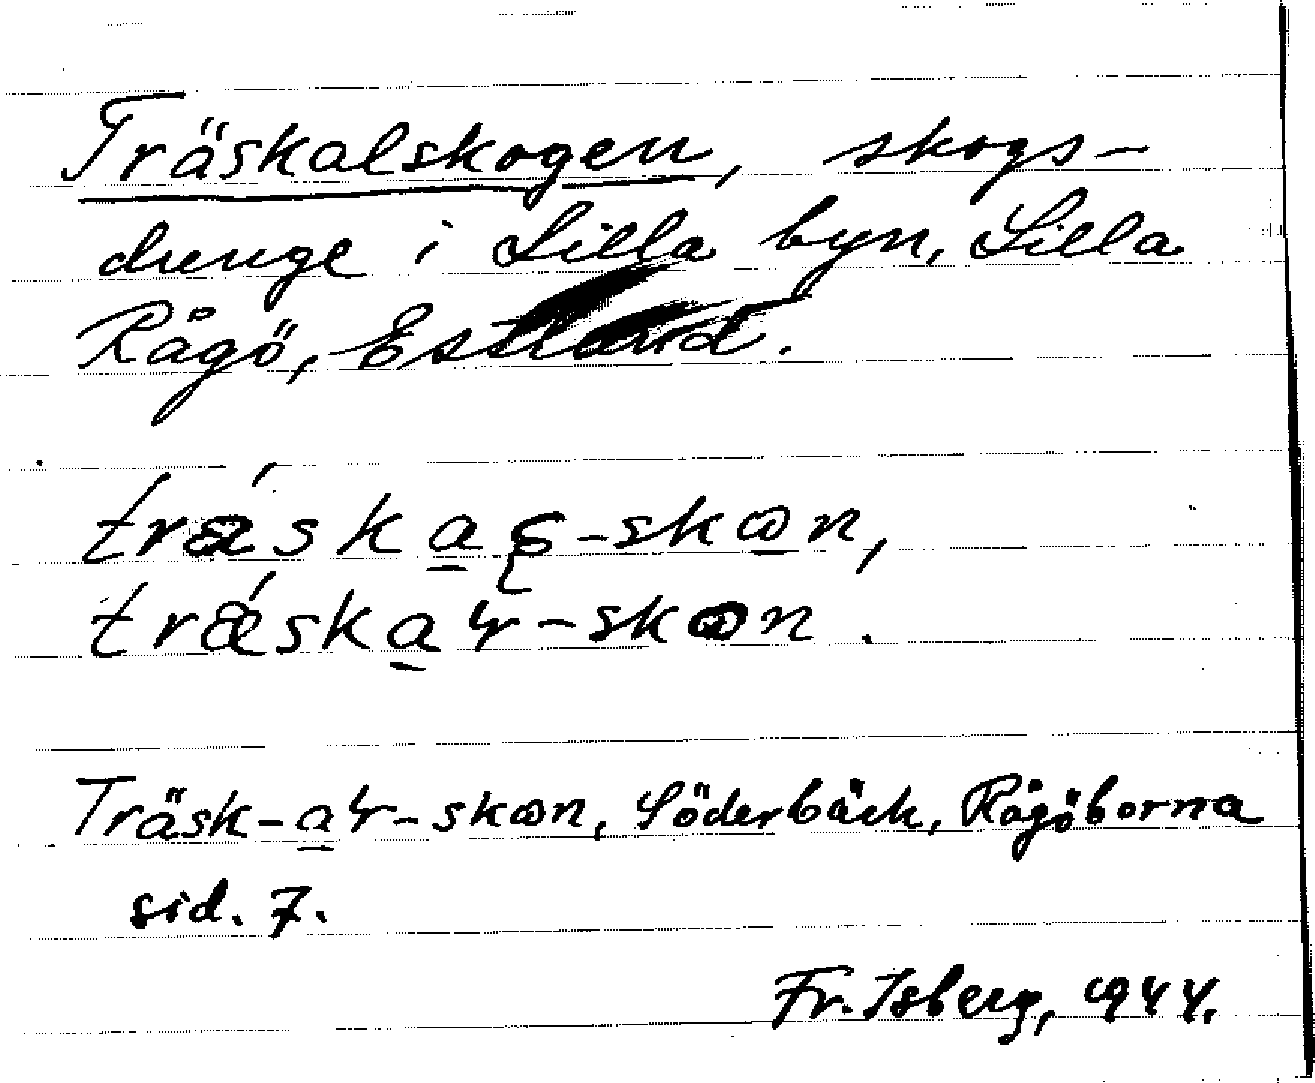 Träskalskogen, skogs-
dunge i Lilla byn, Lilla
Rågö, Estland.
trǽska̲ɽ-skωn,
trǽska̲ɽ-skωn.
Träsk-a̲ɽ-skωn, Söderbäck, Rågöborna
sid. 7.
Fr. Isberg, 1944.